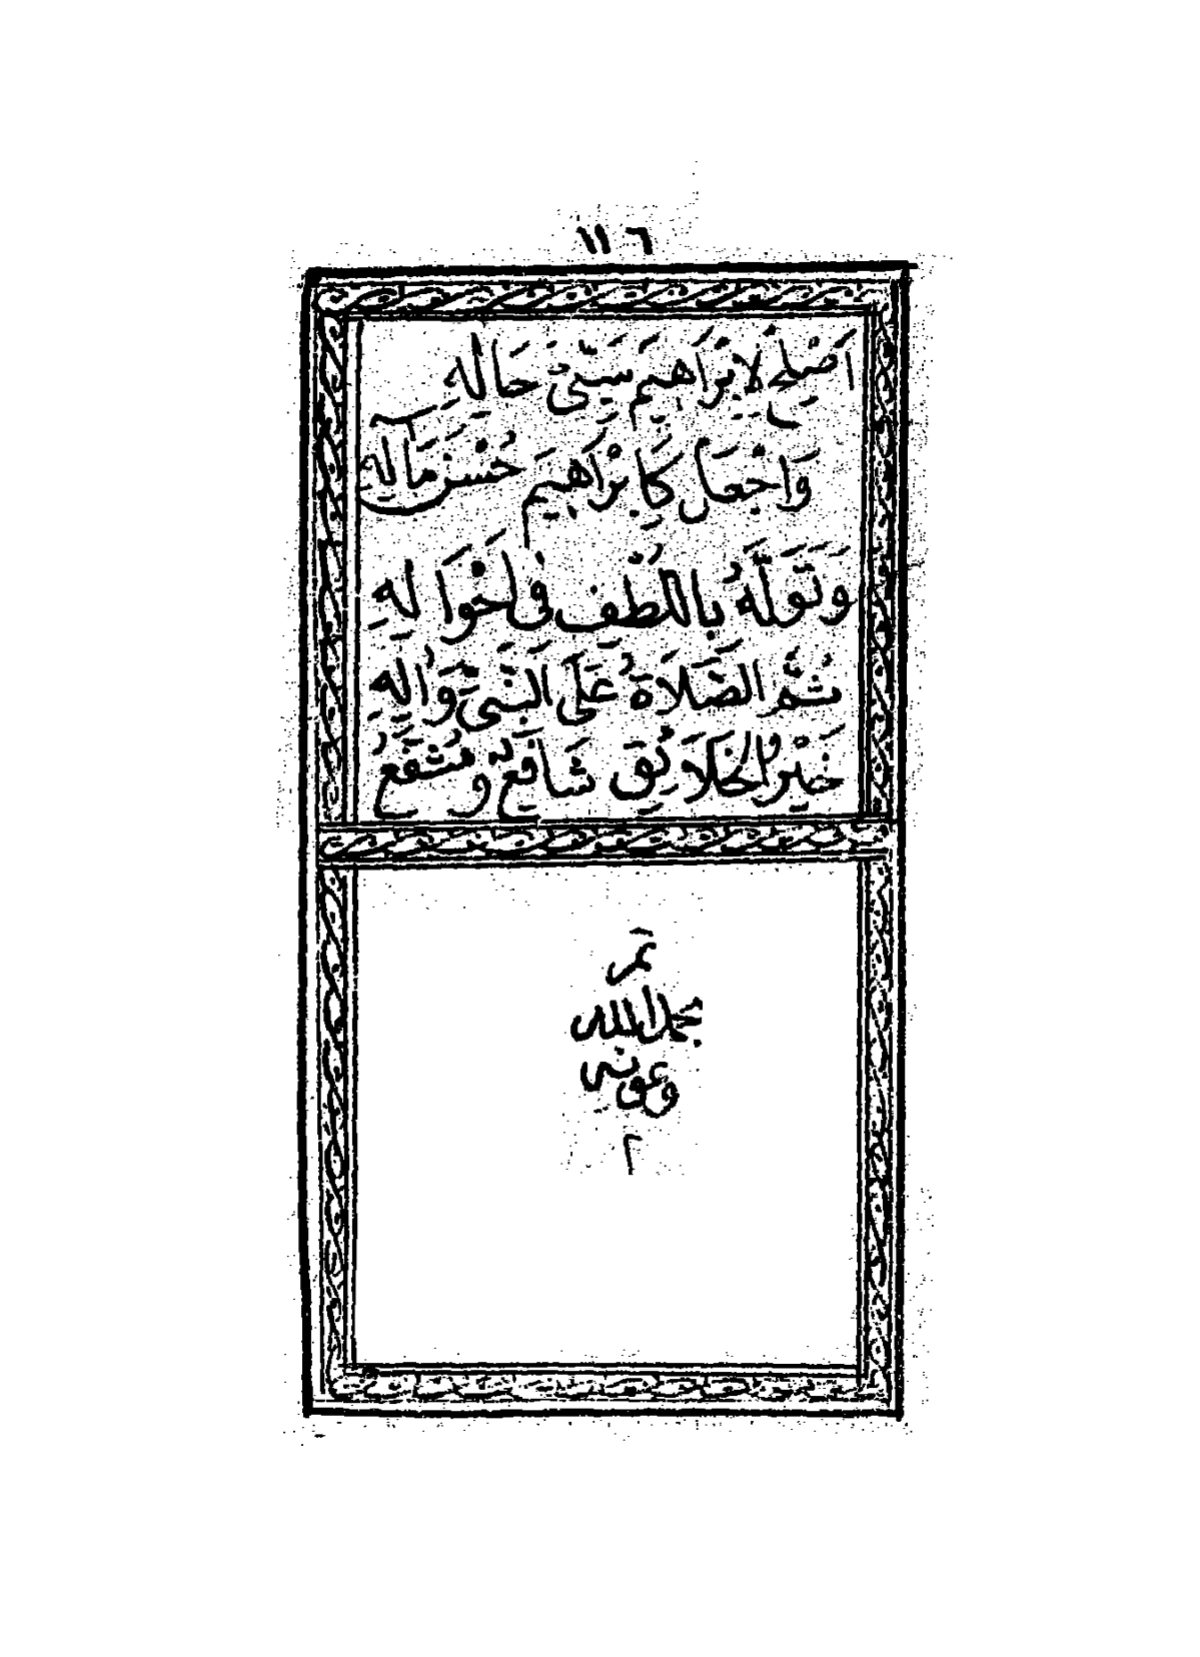 ١١٦
اَصْلِحْ لِابْرَاهِيمَ سَيِّىْ حَالِهِ
وَاجْعَلْ كَابْرَاهِيمَ حُسْنَ مَآلِهِ
وَتَوَلَّهُ بِاللُّطْفِ فِى اَحْوَالِهِ
ثُمَّ الصَّلَاةُ عَلَى النَّبِىِّ وَاٰلِهِ
خَيْرُ الْخَلَائِقِ شَافِعٌ وَمُشَفَّعُ
تمّ
بحمد الله
وعونه
م